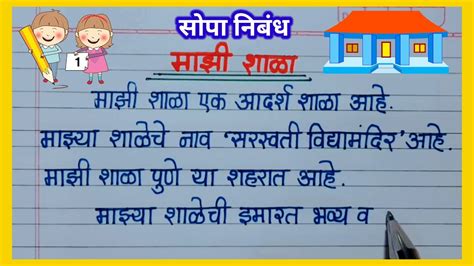 सोपा निबंध
1
माझी शाळा
माझी शाळा एक आदर्श शाळा आहे.
माझ्या शाळेचे नाव 'सरस्वती विद्यामंदिर' आहे.
माझी शाळा पुणे या शहरात आहे.
माझ्या शाळेची इमारत भव्य व